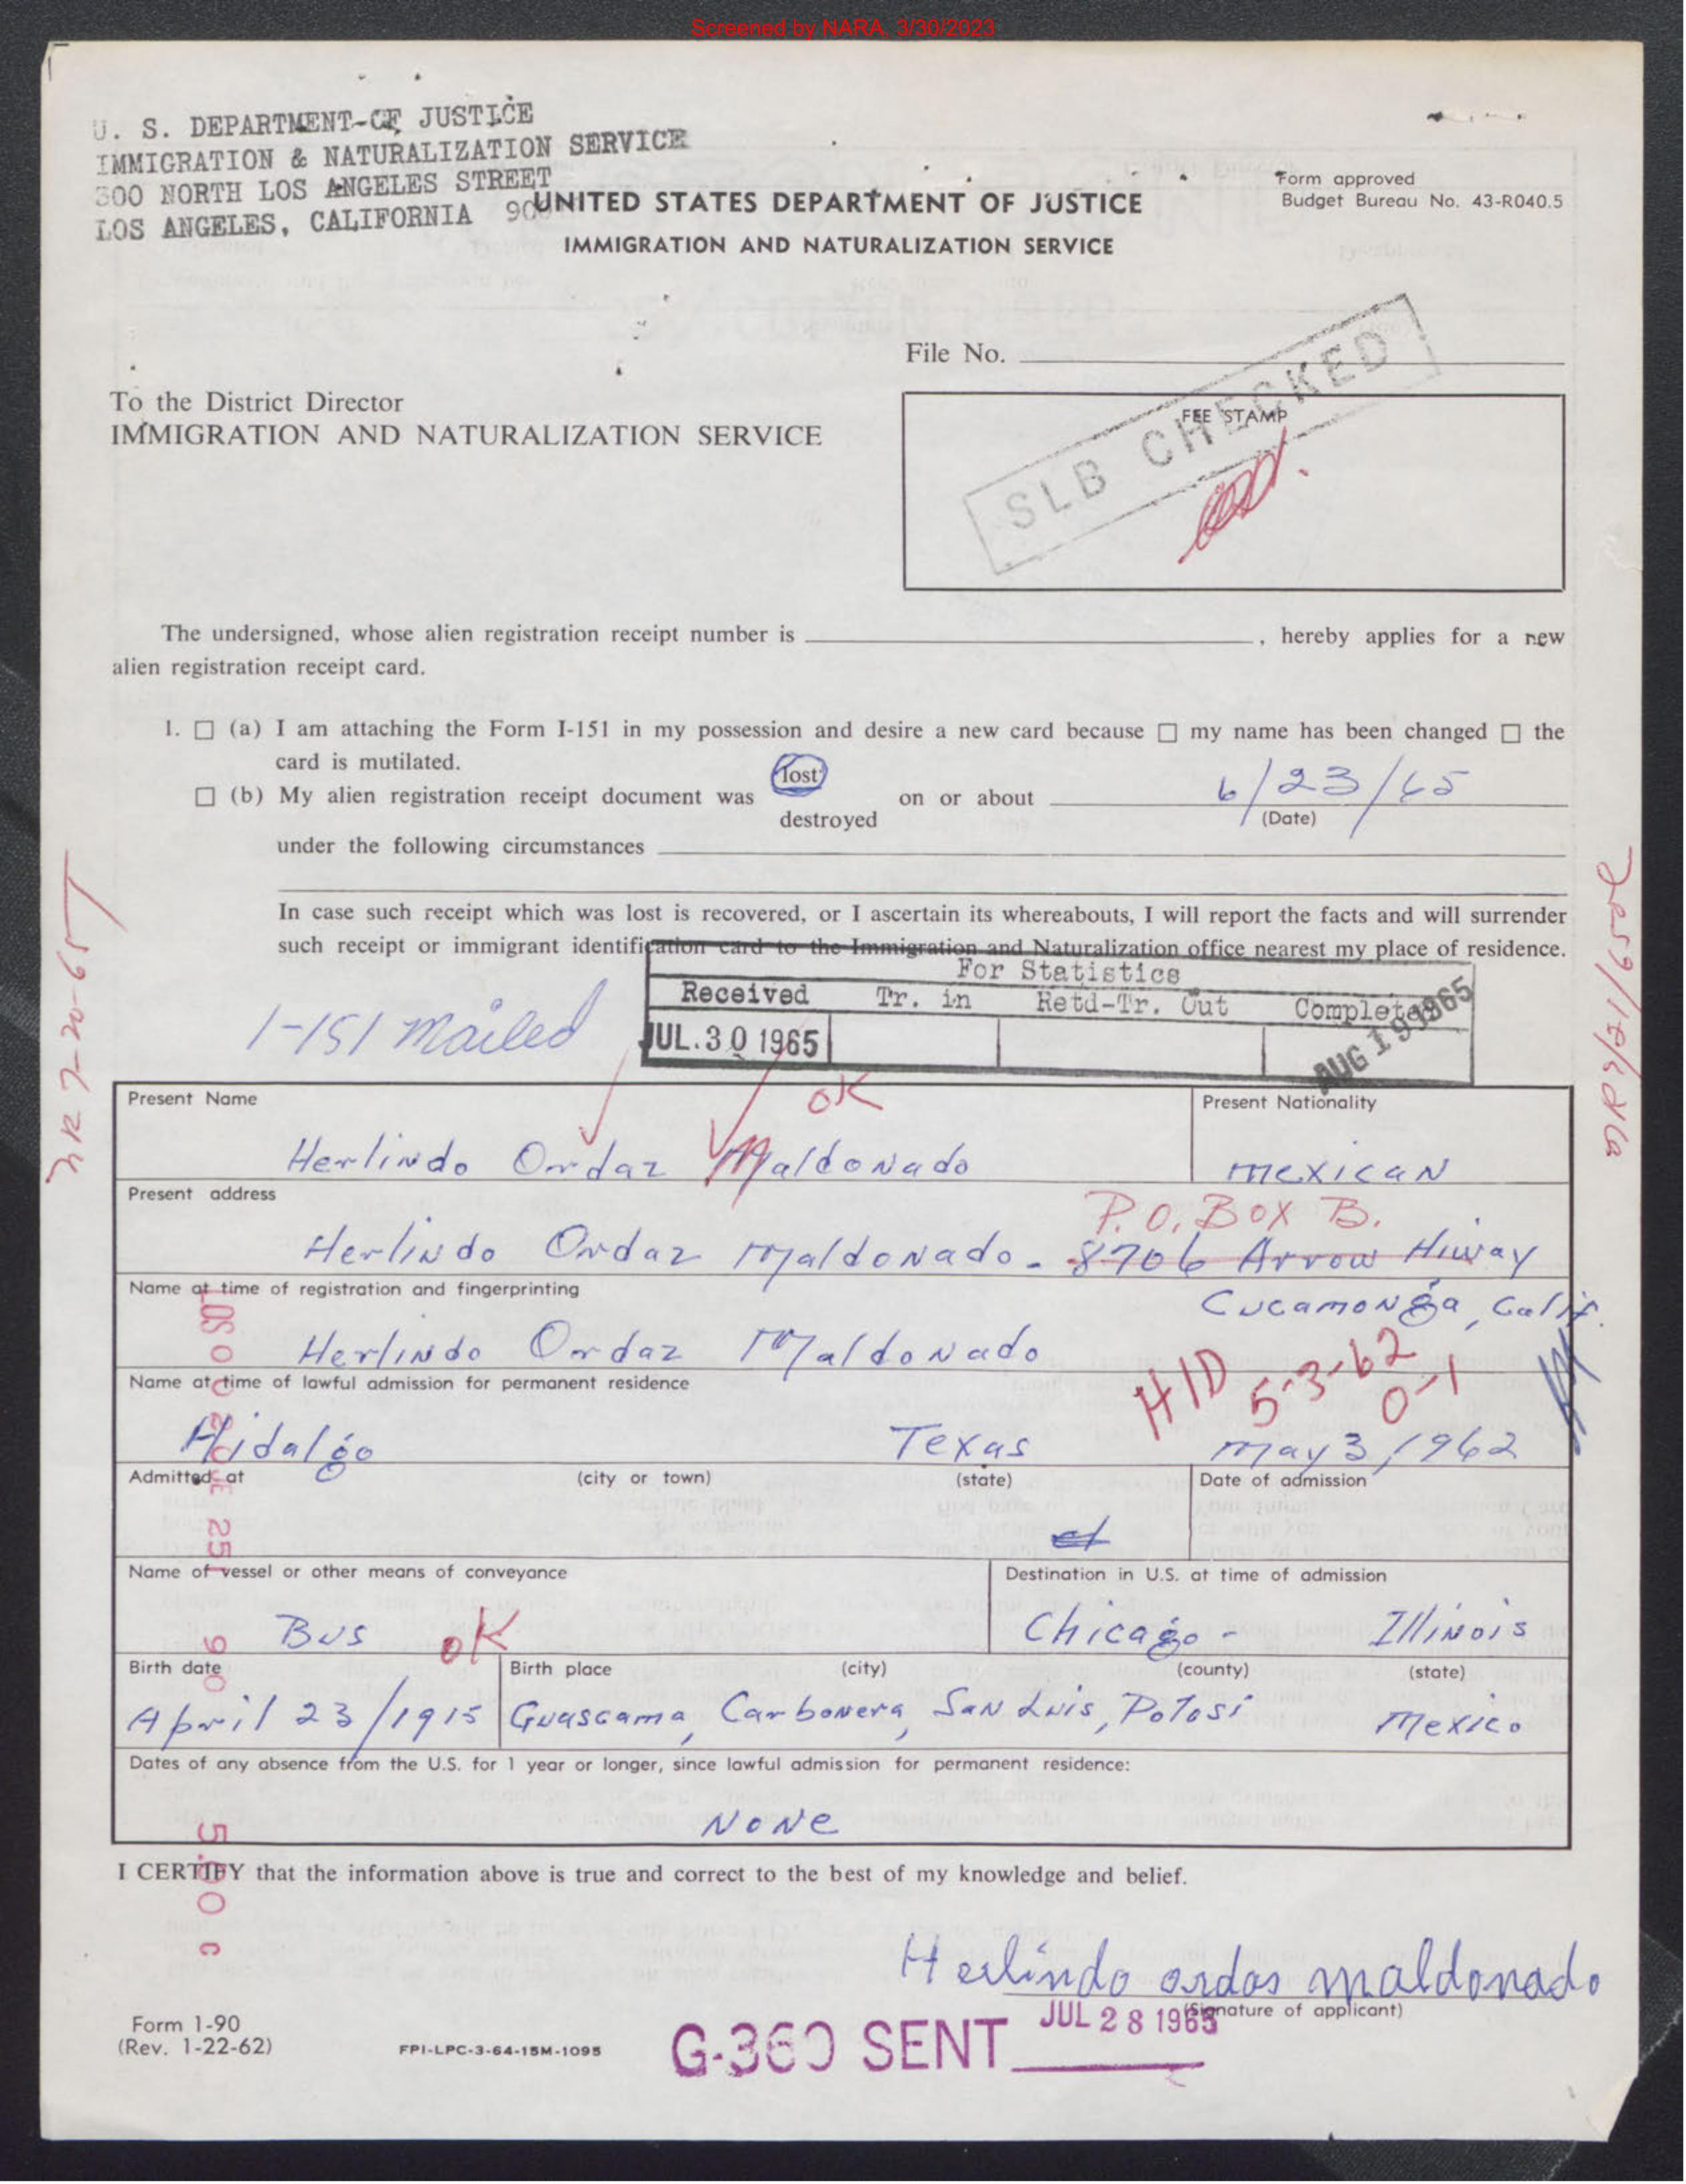 Screened by NARA, 3/30/2023
U. S. DEPARTMENT OF JUSTICE
IMMIGRATION & NATURALIZATION SERVICE
300 NORTH LOS ANGELES STREET
LOS ANGELES, CALIFORNIA
UNITED STATES DEPARTMENT OF JUSTICE
IMMIGRATION AND NATURALIZATION SERVICE
Form approved
Budget Bureau No. 43-R040.5
File No.
To the District Director
IMMIGRATION AND NATURALIZATION SERVICE
FEE STAMP
SLB CHECKED
The undersigned, whose alien registration receipt number is , hereby applies for a new
alien registration receipt card.
1. ☐ (a) I am attaching the Form I-151 in my possession and desire a new card because ☐ my name has been changed ☐ the
card is mutilated.
lost
☐ (b) My alien registration receipt document was on or about 6/23/65
destroyed (Date)
under the following circumstances
In case such receipt which was lost is recovered, or I ascertain its whereabouts, I will report the facts and will surrender
such receipt or immigrant identification card to the Immigration and Naturalization office nearest my place of residence.
For Statistics
Received Tr. in Retd-Tr. Out Completed
JUL. 30 1965 AUG 19 1965
I-151 mailed
NR 7-20-65
OK
Present Name Present Nationality
Herlindo Ordaz Maldonado mexican
Present address
P.O. Box B.
Herlindo Ordaz Maldonado - 8706 Arrow Hiway
Name at time of registration and fingerprinting
Cucamonga, Calif.
Herlindo Ordaz Maldonado
Name at time of lawful admission for permanent residence
HID 5-3-62
0-1
Hidalgo Texas May 3, 1962
Admitted at (city or town) (state) Date of admission
Name of vessel or other means of conveyance Destination in U.S. at time of admission
Bus OK Chicago - Illinois
Birth date Birth place (city) (county) (state)
April 23/1915 Guascama, Carbonera, San Luis, Potosi Mexico
Dates of any absence from the U.S. for 1 year or longer, since lawful admission for permanent residence:
None
I CERTIFY that the information above is true and correct to the best of my knowledge and belief.
Herlindo ordas maldonado
(Signature of applicant)
JUL 28 1965
G-360 SENT
Form I-90
(Rev. 1-22-62)
FPI-LPC-3-64-15M-1095